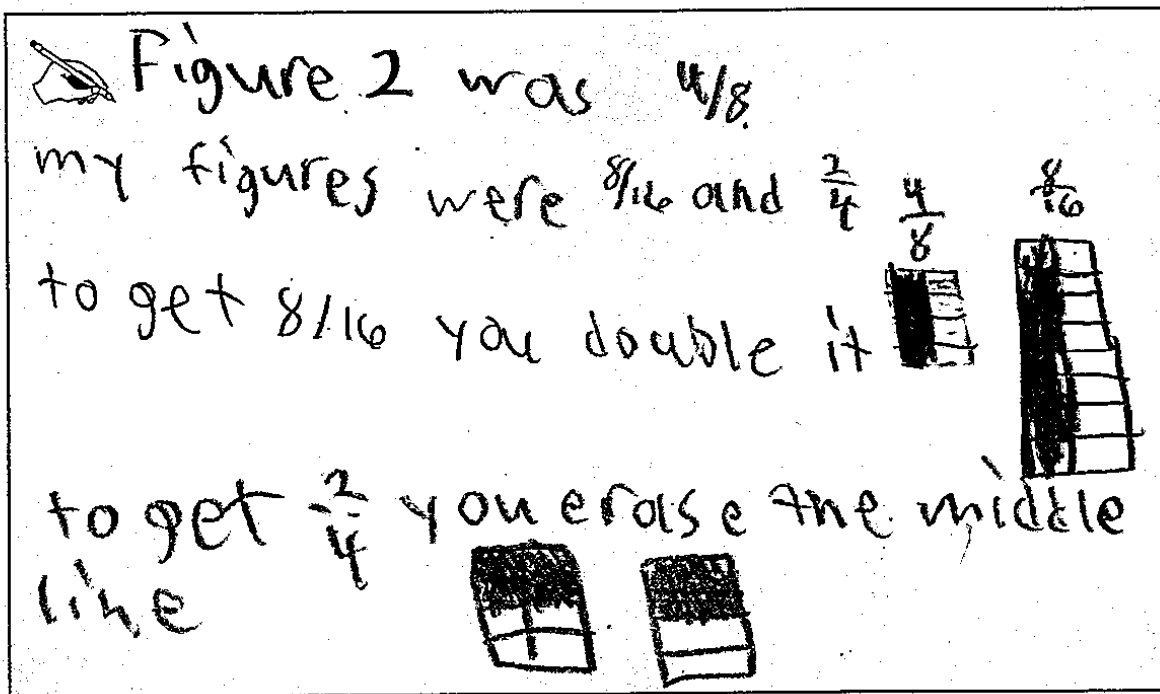 Figure 2 was 4/8.
my figures were 8/16 and 2/4
4/8 8/16
to get 8/16 you double it
to get 2/4 you erase the middle
line